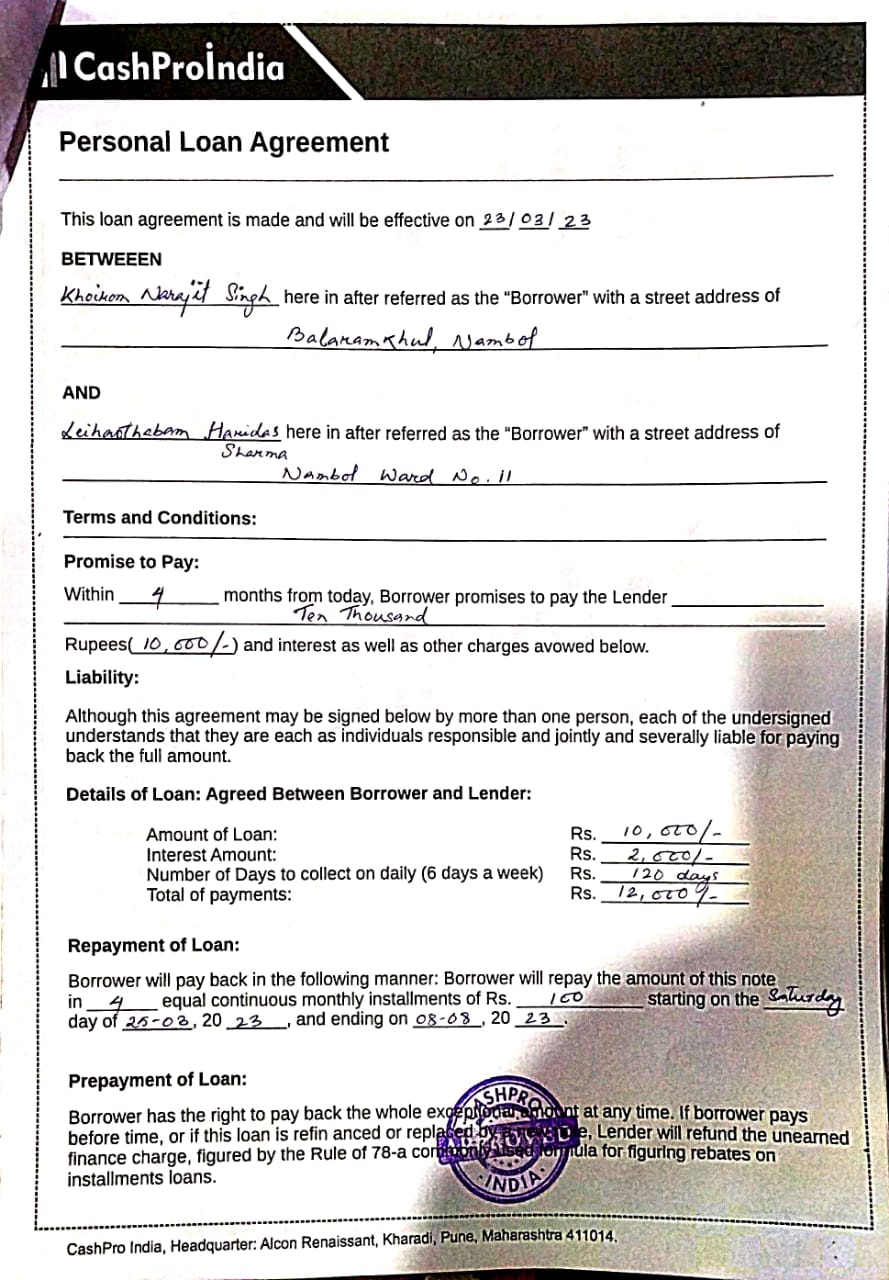 CashProIndia
Personal Loan Agreement
This loan agreement is made and will be effective on 23/ 03/ 23
BETWEEEN
Khoirom Narajit Singh here in after referred as the “Borrower” with a street address of
Balaramkhul, Nambol
AND
Leihaothabam Haridas here in after referred as the “Borrower” with a street address of
Sharma
Nambol Ward No. 11
Terms and Conditions:
Promise to Pay:
Within 4 months from today, Borrower promises to pay the Lender
Ten Thousand
Rupees( 10,000/-) and interest as well as other charges avowed below.
Liability:
Although this agreement may be signed below by more than one person, each of the undersigned
understands that they are each as individuals responsible and jointly and severally liable for paying
back the full amount.
Details of Loan: Agreed Between Borrower and Lender:
Amount of Loan: Rs. 10,000/-
Interest Amount: Rs. 2,000/-
Number of Days to collect on daily (6 days a week) Rs. 120 days
Total of payments: Rs. 12,000/-
Repayment of Loan:
Borrower will pay back in the following manner: Borrower will repay the amount of this note
in 4 equal continuous monthly installments of Rs. 100 starting on the Saturday
day of 25-03, 20 23, and ending on 08-08, 20 23.
Prepayment of Loan:
Borrower has the right to pay back the whole exceptional amount at any time. If borrower pays
before time, or if this loan is refin anced or replaced by a new note, Lender will refund the unearned
finance charge, figured by the Rule of 78-a commonly used formula for figuring rebates on
installments loans.
CASHPRO
INDIA
CashPro India, Headquarter: Alcon Renaissant, Kharadi, Pune, Maharashtra 411014.